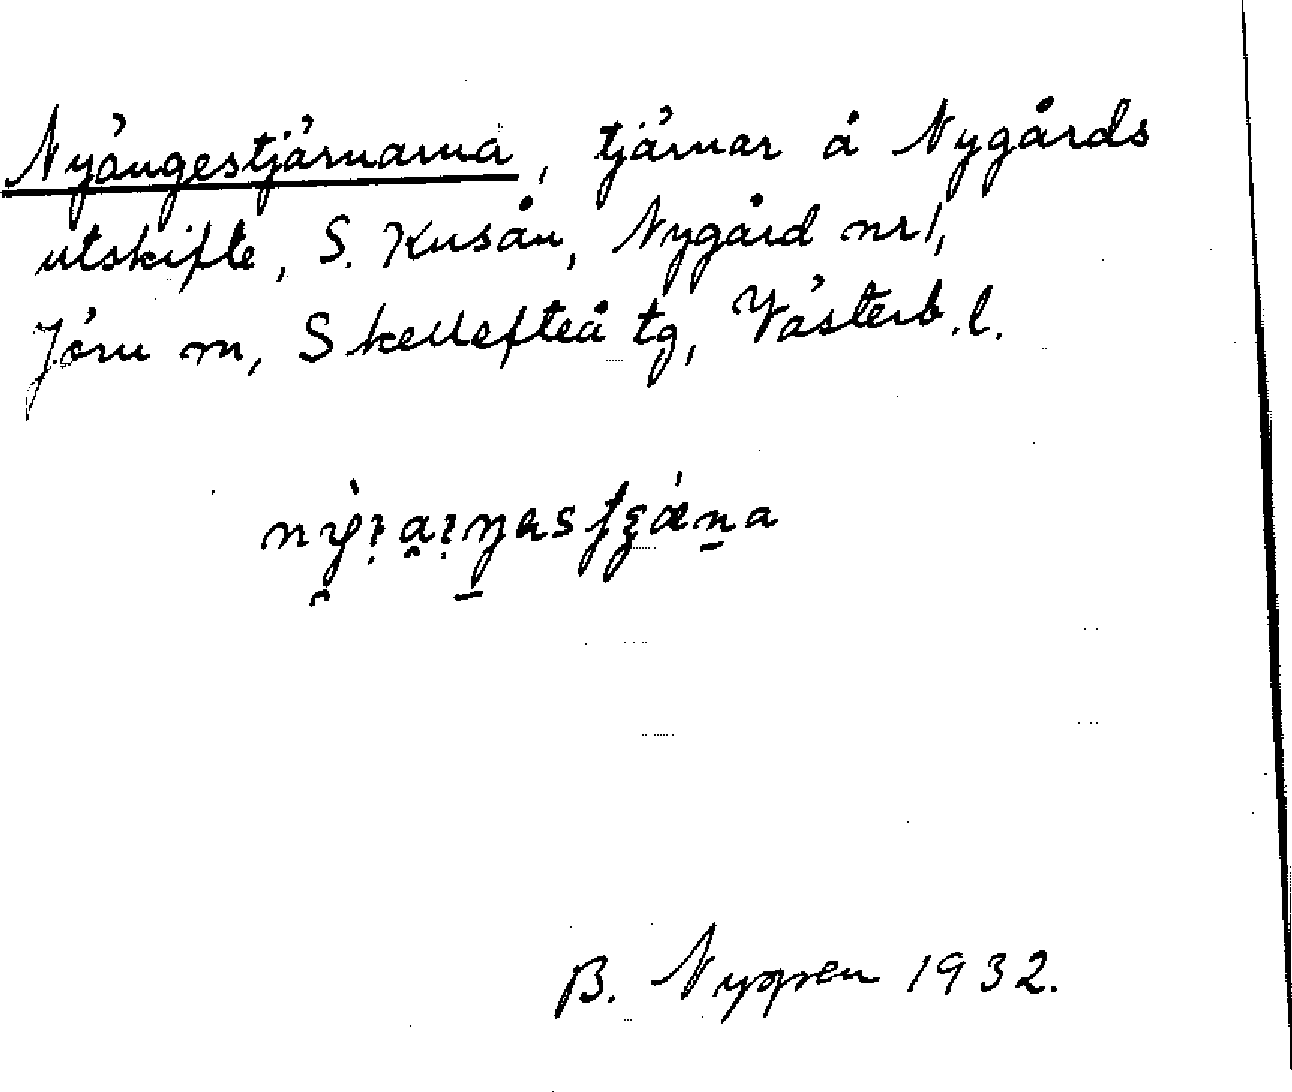 Nyängestjärnarna, tjärnar å Nygårds
utskifte, S. Kusån, Nygård nr 1,
Jörn m, Skellefteå tg, Västerb. l.
B. Nygren 1932.